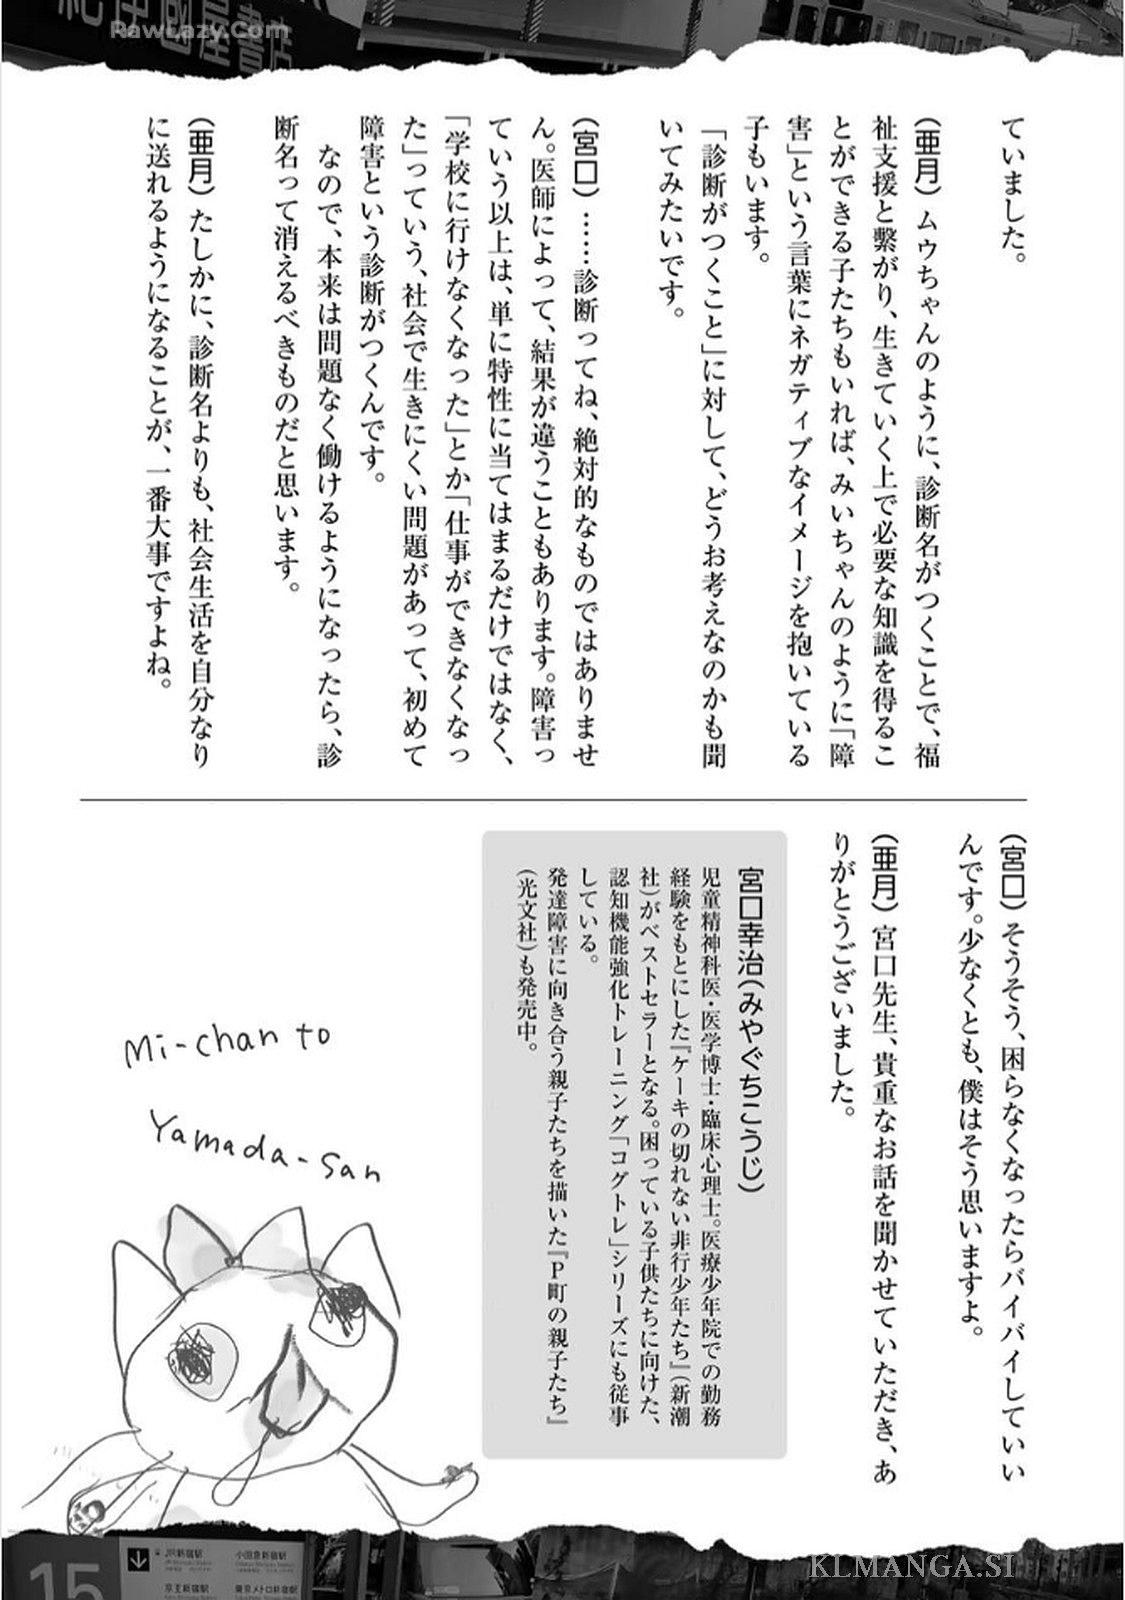 紀伊國屋書店
RawLazy.Com
ていました。
(亜月) ムウちゃんのように、診断名がつくことで、福
祉支援と繋がり、生きていく上で必要な知識を得るこ
とができる子たちもいれば、みいちゃんのように「障
害」という言葉にネガティブなイメージを抱いている
子もいます。
「診断がつくこと」に対して、どうお考えなのかも聞
いてみたいです。
(宮口) ……診断ってね、絶対的なものではありませ
ん。医師によって、結果が違うこともあります。障害っ
ていう以上は、単に特性に当てはまるだけではなく、
「学校に行けなくなった」とか「仕事ができなくなっ
た」っていう、社会で生きにくい問題があって、初めて
障害という診断がつくんです。
なので、本来は問題なく働けるようになったら、診
断名って消えるべきものだと思います。
(亜月) たしかに、診断名よりも、社会生活を自分なり
に送れるようになることが、一番大事ですよね。
(宮口) そうそう、困らなくなったらバイバイしていい
んです。少なくとも、僕はそう思いますよ。
(亜月) 宮口先生、貴重なお話を聞かせていただき、あ
りがとうございました。
宮口幸治(みやぐちこうじ)
児童精神科医・医学博士・臨床心理士。医療少年院での勤務
経験をもとにした『ケーキの切れない非行少年たち』(新潮
社)がベストセラーとなる。困っている子供たちに向けた、
認知機能強化トレーニング「コグトレ」シリーズにも従事
している。
発達障害に向き合う親子たちを描いた『P町の親子たち』
(光文社)も発売中。
Mi-chan to
Yamada-san
15
JR新宿駅
小田急新宿駅
京王新宿駅
東京メトロ新宿駅
KLMANGA.SI